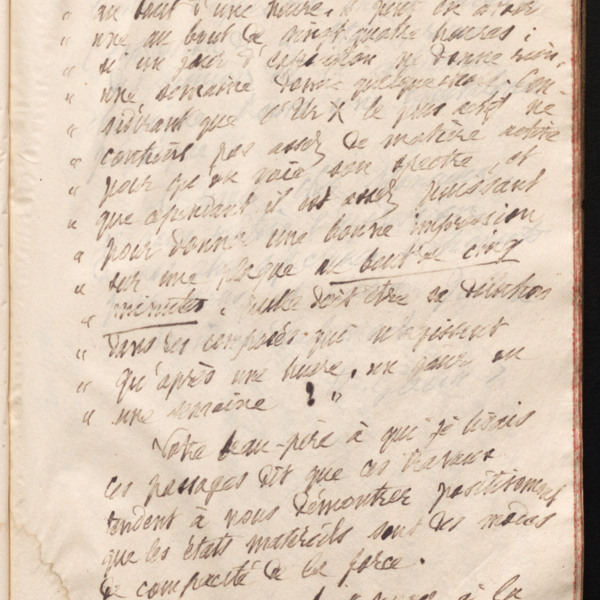 " au bout d'une heure, il peut en avoir
" une au bout de vingt quatre heures ;
" si un jour d'exposition ne donne rien,
" une semaine donne quelque chose. Con-
" sidérant que l' X le plus actif ne
" contient pas assez de matière active
" pour qu'on voie son spectre, et
" que cependant il est assez puissant
" pour donner une bonne impression
" sur une plaque au bout de cinq
" minutes, quelle doit être sa dilution
" dans les composés qui n'agissent
" qu'après une heure, un jour ou
" une semaine ? "
Votre beau-père à qui je lisais
ces passages dit que ces travaux
tendent à nous démontrer positivement
que les états matériels sont des modes
de compacité de la force.
à la